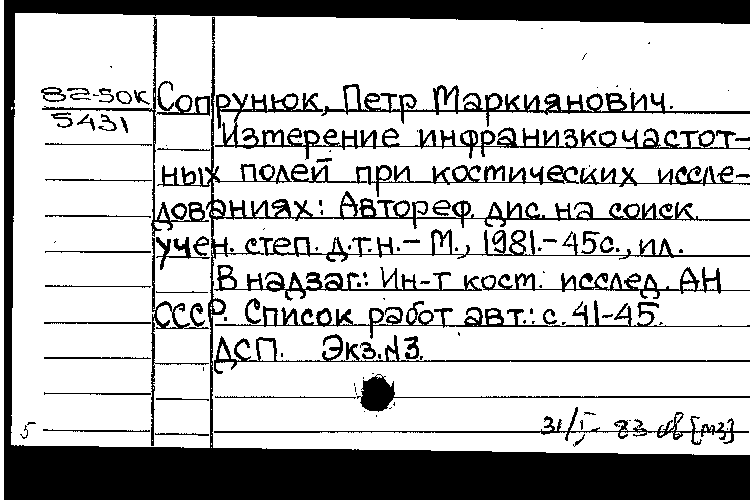 82-50К Сопрунюк, Петр Маркиянович.
5431
Измерение инфранизкочастот-
ных полей при космических иссле-
дованиях: Автореф. дис. на соиск.
учен. степ. д.т.н. - М., 1981. - 45с., ил.
В надзаг.: Ин-т косм. исслед. АН
СССР. Список работ авт.: с. 41-45.
ДСП. Экз. №3.
31/I - 83 [мз]
5